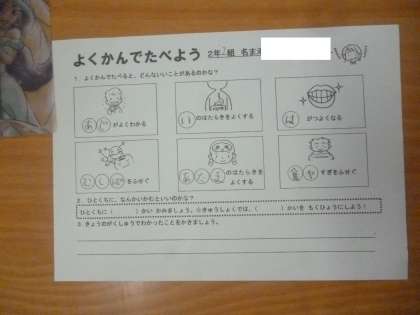 よくかんでたべよう 2年 組 名まえ
1. よくかんでたべると、どんないいことがあるのかな？
あじがよくわかる
いのはたらきをよくする
はがつよくなる
むしばをふせぐ
あたまのはたらきをよくする
食べすぎをふせぐ
2. ひとくちに、なんかいかむといいのかな？
ひとくちに（ ）かい かみましょう。☆きゅうしょくでは、（ ）かいを もくひょうにしよう！
3. きょうのがくしゅうでわかったことをかきましょう。